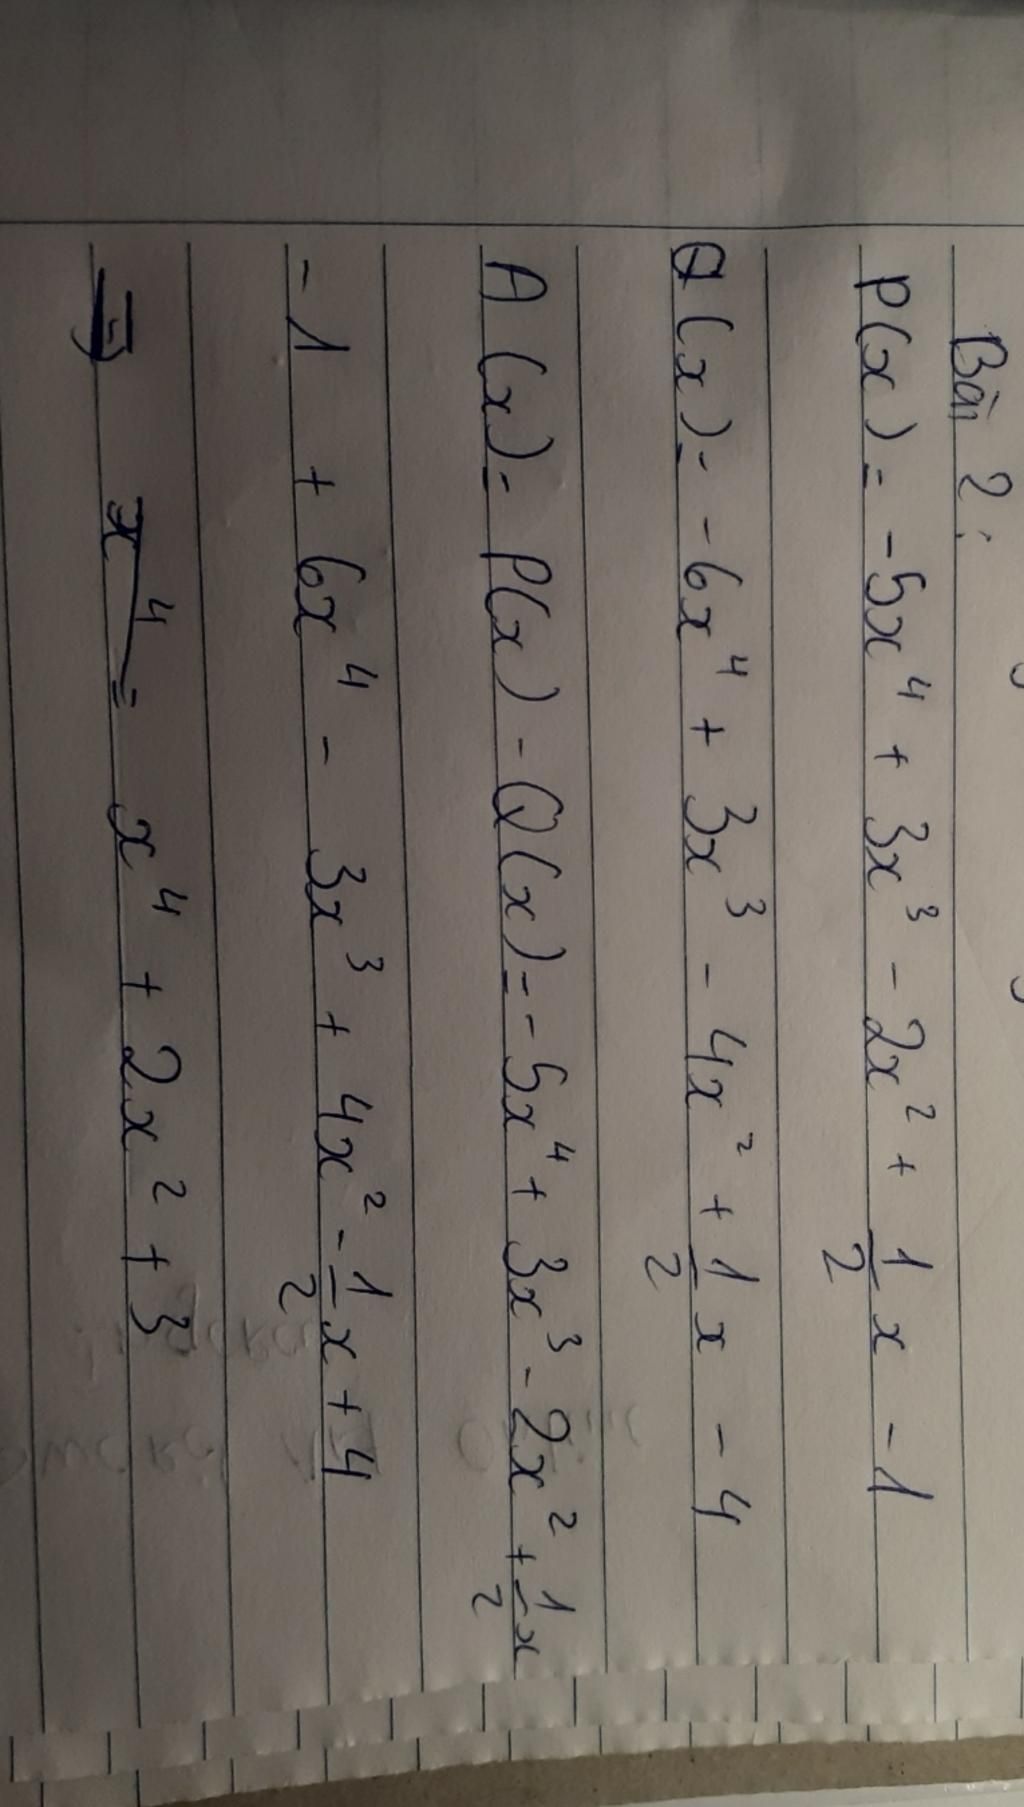 Bài 2:
P(x) = -5x⁴ + 3x³ - 2x² + 1/2 x - 1
Q(x) = -6x⁴ + 3x³ - 4x² + 1/2 x - 4
A(x) = P(x) - Q(x) = -5x⁴ + 3x³ - 2x² + 1/2 x
- 1 + 6x⁴ - 3x³ + 4x² - 1/2 x + 4
= x⁴ + 2x² + 3